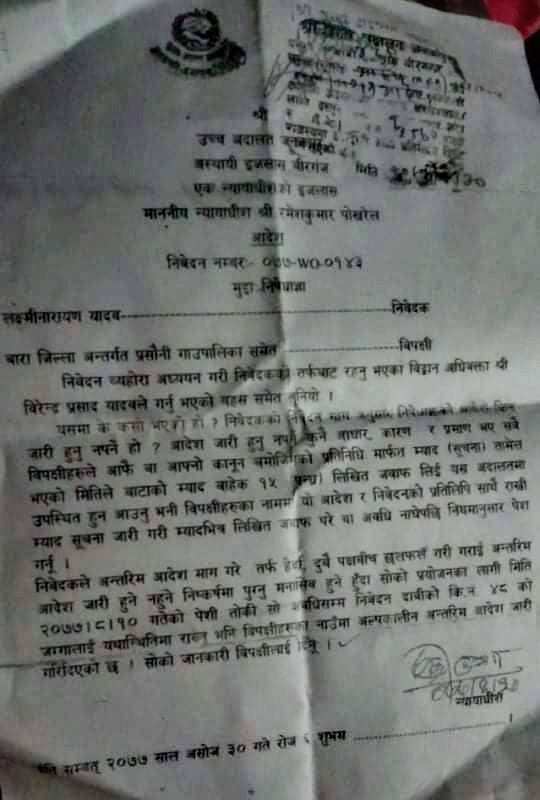 श्री
उच्च अदालत जनकपुर
अस्थायी इजलास विरगंज
एक न्यायाधीशको इजलास
माननीय न्यायाधीश श्री रमेशकुमार पोखरेल
आदेश
निवेदन नम्बरः- ०७७-WO-०१४३
मुद्दाः-निषेधाज्ञा
लक्ष्मीनारायण यादव------------------------निवेदक
बारा जिल्ला अन्तर्गत प्रसौनी गाउपालिका समेत ------------------------विपक्षी
निवेदन व्यहोरा अध्ययन गरी निवेदकको तर्फबाट रहनु भएका विद्वान अधिवक्ता श्री
विरेन्द्र प्रसाद यादवले गर्नु भएको बहस समेत सुनियो ।
यसमा के कसो भएको हो ? निवेदकको निवेदन माग बमुजिम निषेधाज्ञाको आदेश किन
जारी हुनु नपर्ने हो ? आदेश जारी हुनु नपर्ने कुनै आधार, कारण र प्रमाण भए सबै
विपक्षीहरुले आफै वा आफ्नो कानून बमोजिमको प्रतिनिधि मार्फत म्याद (सूचना) तामेल
भएको मितिले बाटाको म्याद बाहेक १५ (पन्ध्र) लिखित जवाफ लिई यस अदालतमा
उपस्थित हुन आउनु भनी विपक्षीहरुका नाममा यो आदेश र निवेदनको प्रतिलिपि साथै राखी
म्याद सूचना जारी गरी म्यादभित्र लिखित जवाफ परे वा अवधि नाघेपछि नियमानुसार पेश
गर्नू ।
निवेदकले अन्तरिम आदेश माग गरे तर्फ हेर्दा, दुबै पक्षबीच छलफल गरी गराई अन्तरिम
आदेश जारी हुने नहुने निष्कर्षमा पुग्नु मनासिब हुने हुँदा सोको प्रयोजनका लागी मिति
२०७७।८।१० गतेको पेशी तोकी सो अवधिसम्म निवेदन दावीको कि.नं. ४८ को
जग्गालाई यथास्थितिमा राख्नु भनि विपक्षीहरुका नाउँमा अल्पकालीन अन्तरिम आदेश जारी
गरिदिएको छ । सोको जानकारी विपक्षीलाई दिनू ।
न्यायाधीश
इति सम्वत् २०७७ साल असोज ३० गते रोज ६ शुभम ------------------------।